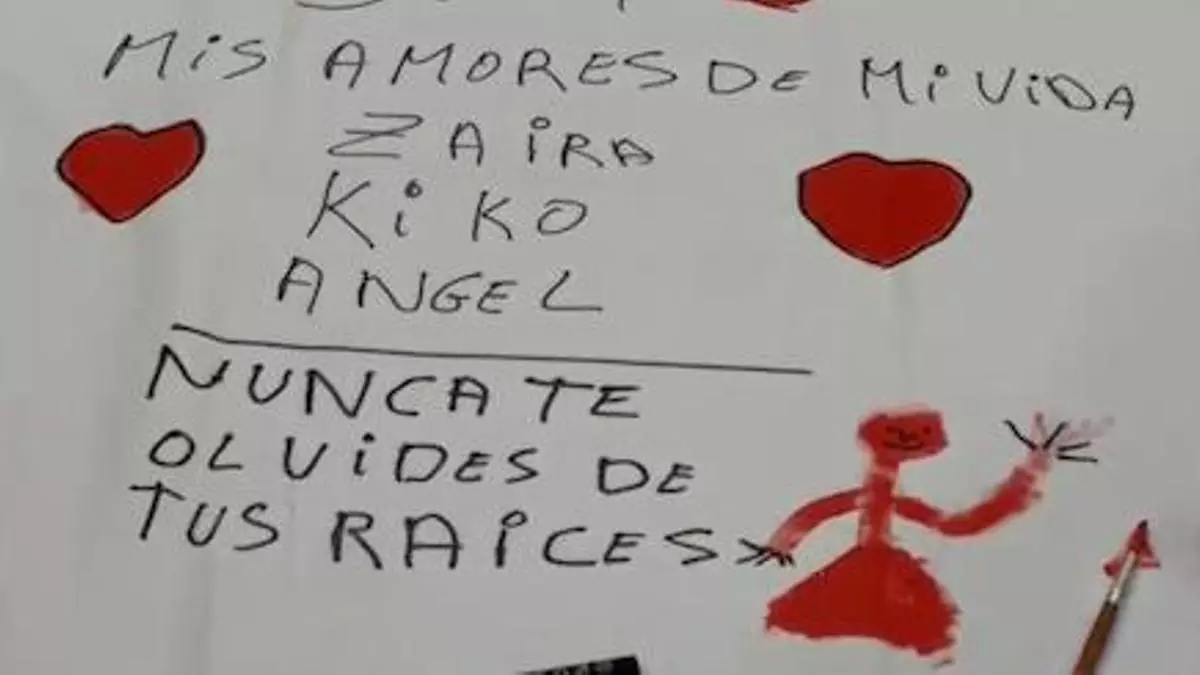 MiS AMORES DE MiViDA
ZAiRA
KiKO
ANGEL
NUNCA TE
OLViDES DE
TUS RAiCES